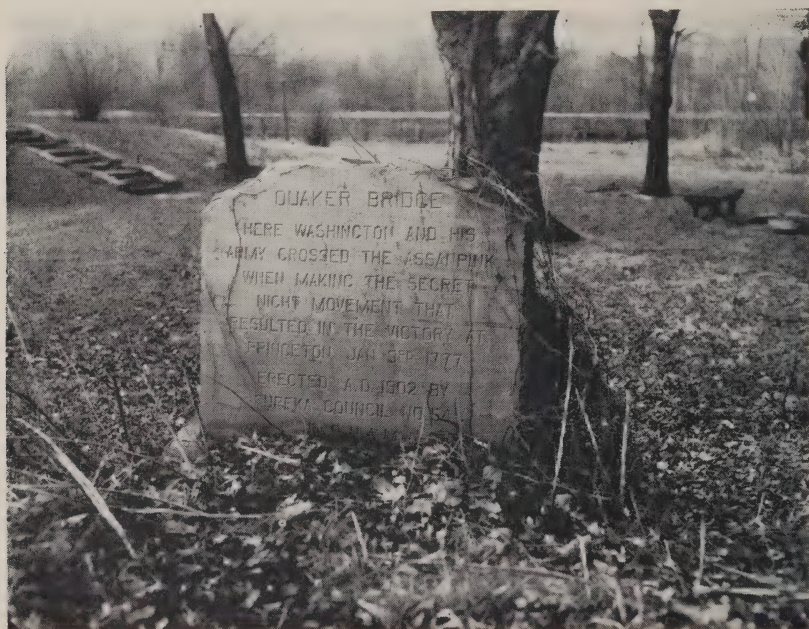 QUAKER BRIDGE
HERE WASHINGTON AND HIS
ARMY CROSSED THE ASSANPINK
WHEN MAKING THE SECRET
NIGHT MOVEMENT THAT
RESULTED IN THE VICTORY AT
PRINCETON JAN 3RD 1777
ERECTED A.D. 1902 BY
EUREKA COUNCIL NO 54